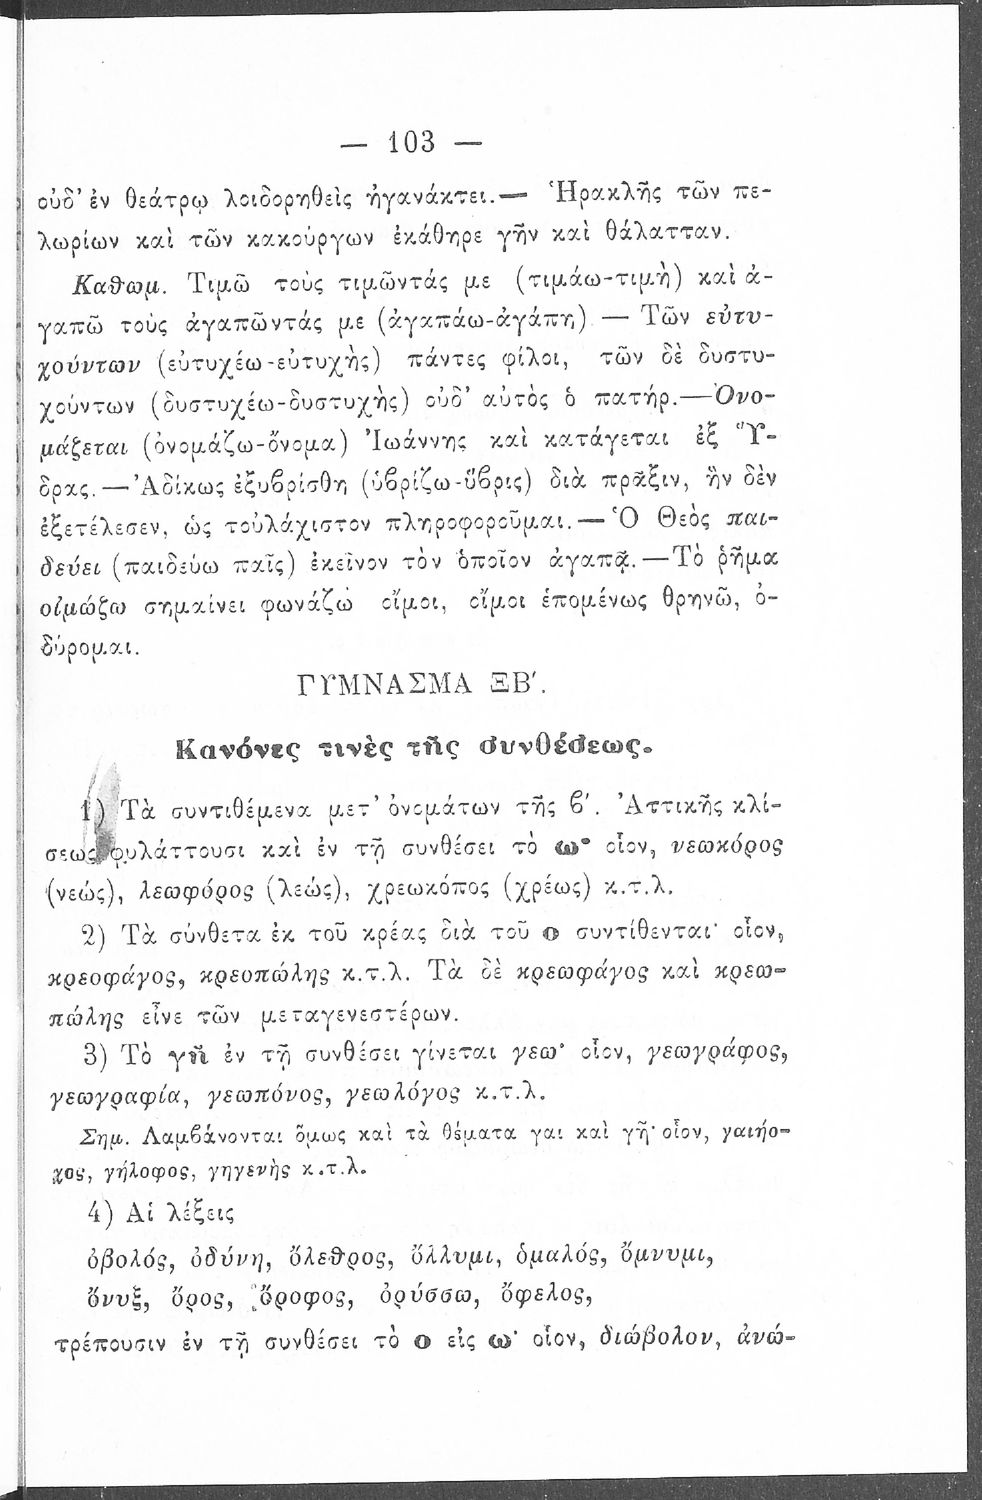 — 103 —
οὐδ’ ἐν θεάτρῳ λοιδορηθεὶς ἠγανάκτει.— Ἡρακλῆς τῶν πε-
λωρίων καὶ τῶν κακούργων ἐκάθηρε γῆν καὶ θάλατταν.
Καθωμ. Τιμῶ τοὺς τιμῶντάς με (τιμάω-τιμὴ) καὶ ἀ-
γαπῶ τοὺς ἀγαπῶντάς με (ἀγαπάω-ἀγάπη) — Τῶν εὐτυ-
χούντων (εὐτυχέω-εὐτυχὴς) πάντες φίλοι, τῶν δὲ δυστυ-
χούντων (δυστυχέω-δυστυχὴς) οὐδ’ αὐτὸς ὁ πατήρ.—Ὀνο-
μάζεται (ὀνομάζω-ὄνομα) Ἰωάννης καὶ κατάγεται ἐξ Ὕ-
δρας.—Ἀδίκως ἐξυβρίσθη (ὑβρίζω-ὕβρις) διὰ πρᾶξιν, ἣν δὲν
ἐξετέλεσεν, ὡς τοὐλάχιστον πληροφοροῦμαι.—Ὁ Θεὸς παι-
δεύει (παιδεύω παῖς) ἐκεῖνον τὸν ὁποῖον ἀγαπᾷ.—Τὸ ῥῆμα
οἰμώζω σημαίνει φωνάζω οἴμοι, οἴμοι ἑπομένως θρηνῶ, ὀ-
δύρομαι.
ΓΥΜΝΑΣΜΑ ΞΒ′.
Κανόνες τινὲς τῆς συνθέσεως.
1) Τὰ συντιθέμενα μετ’ ὀνομάτων τῆς β′. Ἀττικῆς κλί-
σεως φυλάττουσι καὶ ἐν τῇ συνθέσει τὸ ω· οἷον, νεωκόρος
(νεώς), λεωφόρος (λεώς), χρεωκόπος (χρέως) κ.τ.λ.
2) Τὰ σύνθετα ἐκ τοῦ κρέας διὰ τοῦ ο συντίθενται· οἷον,
κρεοφάγος, κρεοπώλης κ.τ.λ. Τὰ δὲ κρεωφάγος καὶ κρεω-
πώλης εἶνε τῶν μεταγενεστέρων.
3) Τὸ γῆ ἐν τῇ συνθέσει γίνεται γεω· οἷον, γεωγράφος,
γεωγραφία, γεωπόνος, γεωλόγος κ.τ.λ.
Σημ. Λαμβάνονται ὅμως καὶ τὰ θέματα γαι καὶ γῆ· οἷον, γαιήο-
χος, γήλοφος, γηγενὴς κ.τ.λ.
4) Αἱ λέξεις
ὀβολός, ὀδύνη, ὄλεθρος, ὄλλυμι, ὁμαλός, ὄμνυμι,
ὄνυξ, ὄρος, ὄροφος, ὀρύσσω, ὄφελος,
τρέπουσιν ἐν τῇ συνθέσει τὸ ο εἰς ω· οἷον, διώβολον, ἀνώ-